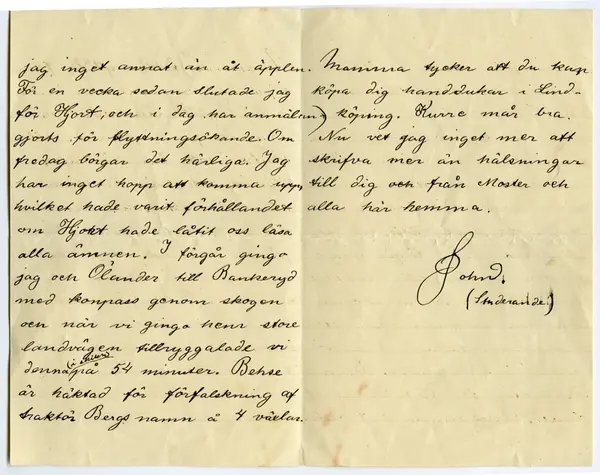 jag inget annat än åt äpplen.
För en vecka sedan slutade jag
för Hjort, och i dag har anmälan
gjorts för flyttningsökande. Om
fredag börgar det härliga. Jag
har inget hopp att komma upp,
hvilket hade varit förhållandet
om Hjort hade låtit oss läsa
alla ämnen. I förgår gingo
jag och Olander till Bankeryd
med konpass genom skogen
och när vi gingo hem store
landvägen tillryggalade vi
denna på 54 minuter. Behse
är häktad för förfalskning af
traktör Bergs namn å 4 växlar.
Mamma tycker att du kan
köpa dig handdukar i Lind-
köping. Kurre mår bra.
Nu vet jag inget mer att
skrifva mer än hälsningar
till dig och från Moster och
alla här hemma.
John.
(Studerande.)